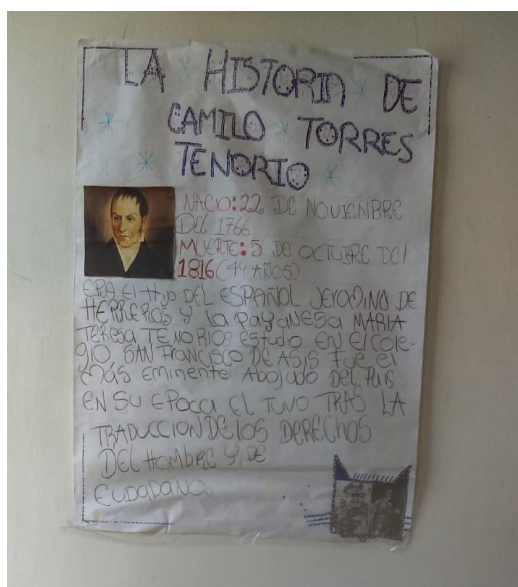 LA HISTORIA DE
CAMILO TORRES
TENORIO
NACIO: 22 DE NOVIENBRE
DEL 1766
MUERTE: 5 DE OCTUBRE DEl
1816 (49 AÑOS)
ERA El HIJO DEL ESPAÑOL JERONINO DE
HERREROS Y la PAYANESA MARIA
TERESA TENORIO: ESTUDIO EN El COLE-
GIO SAN FRANCISCO DE ASIS FUE el
MÁS EMINENTE Abojado DEL PAIS
EN SU EPOCA El TUVO TRAS LA
TRADUCCION DE LOS DERECHOS
DEL HOMBRE Y DE
CUDADANO.